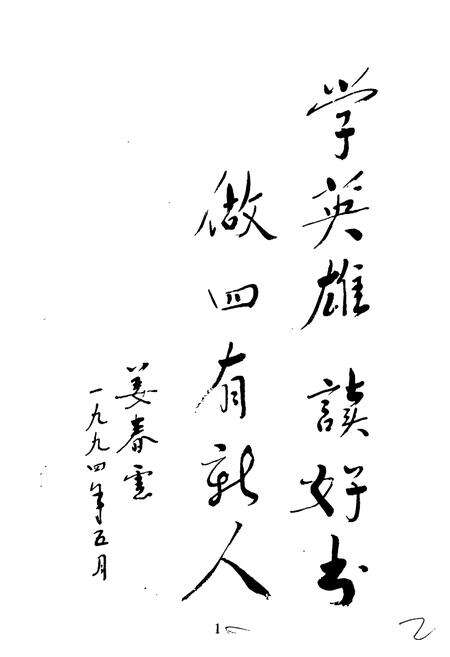 学英雄 读好书
做四有新人
姜春雲
一九九四年五月
1